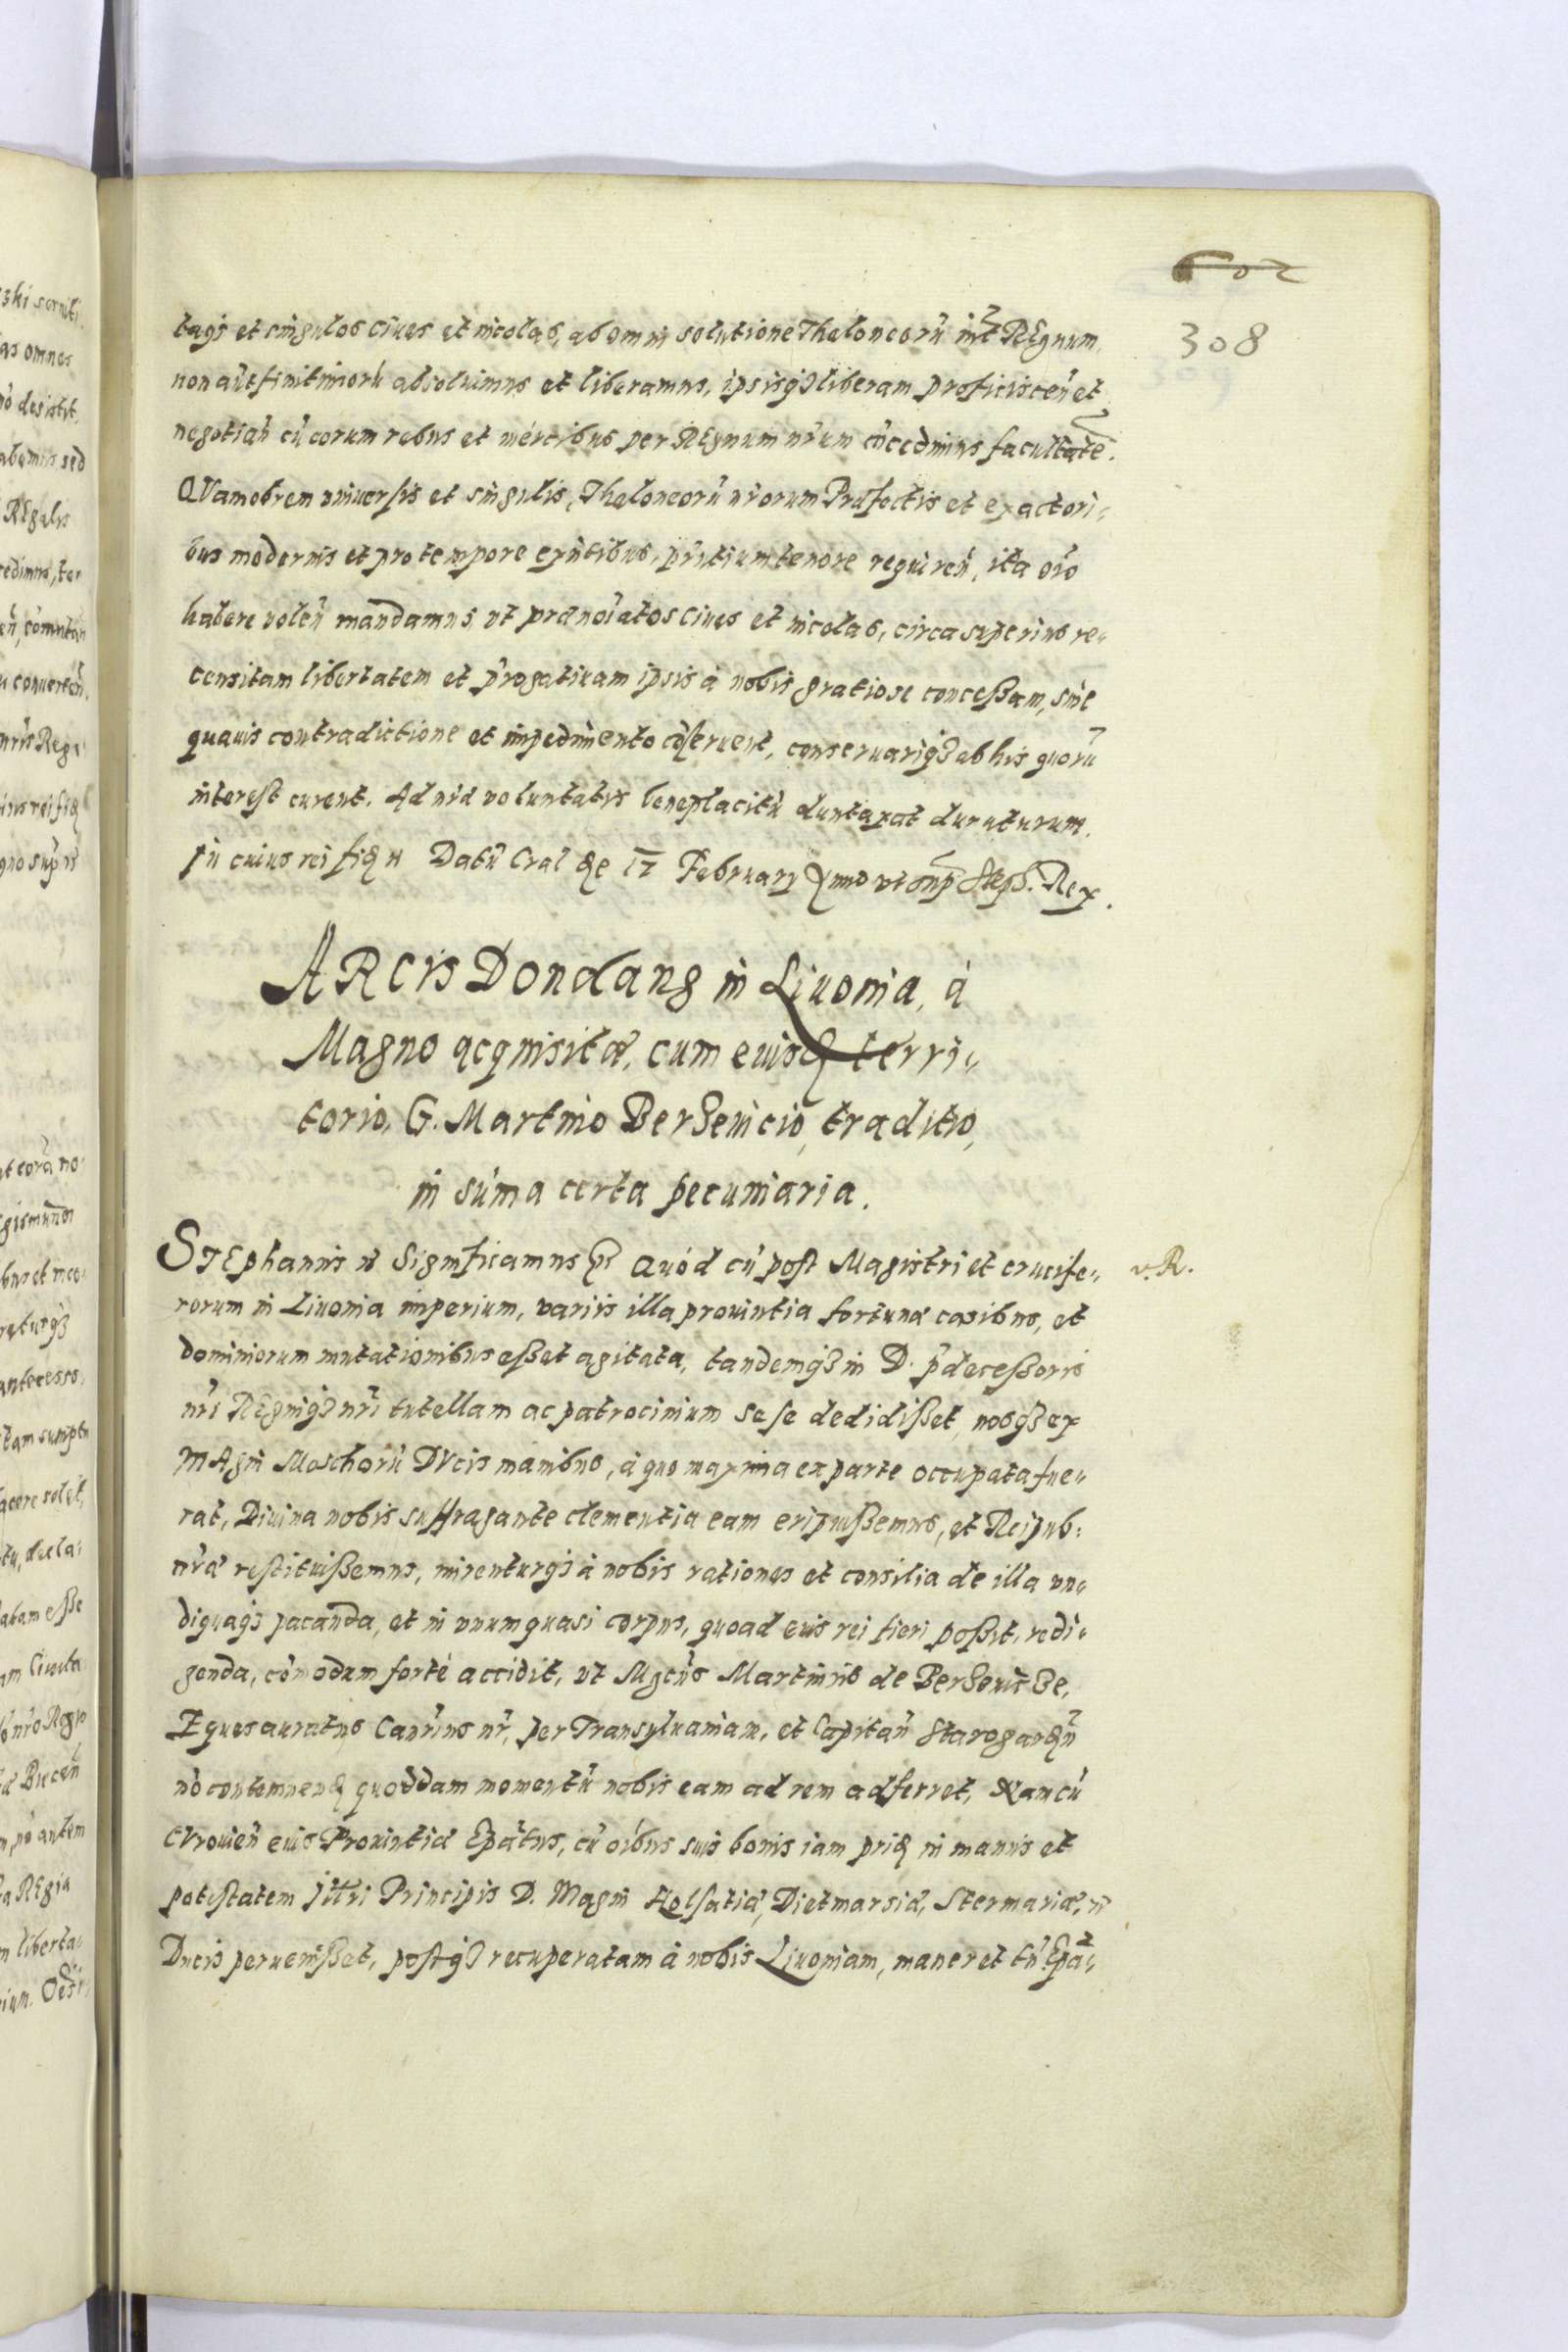 602
308
taqȝ et singulos ciues et incolas, ab omni solutione Theloneorũ intᷣ REgnum,
non aũt finitimorũ absoluimus et liberamus, ipsisqȝ liberam proficisceñ et
negotiañ cũ eorum rebus et mercibus per REgnum nr̃um cõcedimus facultatẽ.
QVamobrem vniuersis et singulis, Theloneorũ nr̃orum Præfectis et exactori„
bus modernis et pro tempore exñtibus, pñtium tenore requireñ, ita oĩo
habere voleñ mandamus, vt prænoĩatos ciues et incolas, circa superius re„
censitam libertatem et p̃rogatiuam ipsis à nobis gratiose conceßam, sine
quauis contradictione et impedimento cõseruent, conseruariqȝ ab his quorũ
interest curent. Ad nr̃æ voluntatis beneplacitũ duntaxat duraturum.
In cuius rei fidẽ Datũ Crac die 17 February Anno vt supᷓ Steph. Rex.
ARCis Dondang in Liuonia, à
Magno acquisitæ, cum euisdẽ terri„
torio, G. Martino Berseuicio, traditio,
in sum̃a certa pecuniaria.
STEphanus Significamus Quòd cũ post Magistri et crucife„
v. R.
rorum in Liuonia imperium, variis illa prouintia fortunæ casibus, et
dominiorum mutationibus eßet agitata, tandemqȝ in D. p̃deceßoris
nr̃i REgniqȝ nr̃i tutellam ac patrocinium sese dedidißet, nosqȝ ex
MAgni Moschorũ DVcis manibus, à quo maxima ex parte occupata fue„
rat, Diuina nobis suffragante clementia eam eripuißemus, et Reipub:
nr̃æ restituißemus, mirenturqȝ à nobis rationes et consilia de illa vn„
diquaqȝ pacanda, et in vnum quasi corpus, quoad eius rei fieri poßit, redi„
genda, com̃odum fortè accidit, vt Mgcũs Martinus de Berseuicze,
Eques auratus Canr̃ius nr̃, per Transyluaniam, et Capitañ Starogardeñ
nõ contemnendũ quoddam momentũ nobis eam ad rem adferret, Nam cũ
CVronieñ eius Prouintiæ Epãtus, cũ oĩbus suis bonis iam pridẽ in manus et
potestatem Illr̃i Principis D. Magni Holsatiæ, Dietmarsiæ, Stermariæ,
Ducis peruenißet, postqȝ recuperatam à nobis Liuoniam, maneret tñ Epã„